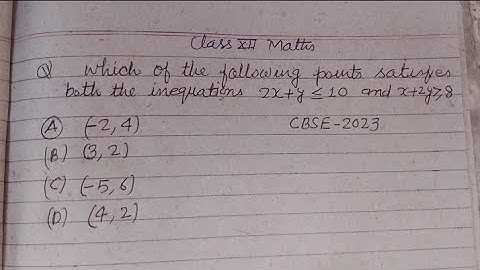 Class XII Maths
Q which of the following points satisfies
both the inequations 2x+y ≤ 10 and x+2y ≥ 8
(A) (-2, 4) CBSE-2023
(B) (3, 2)
(C) (-5, 6)
(D) (4, 2)